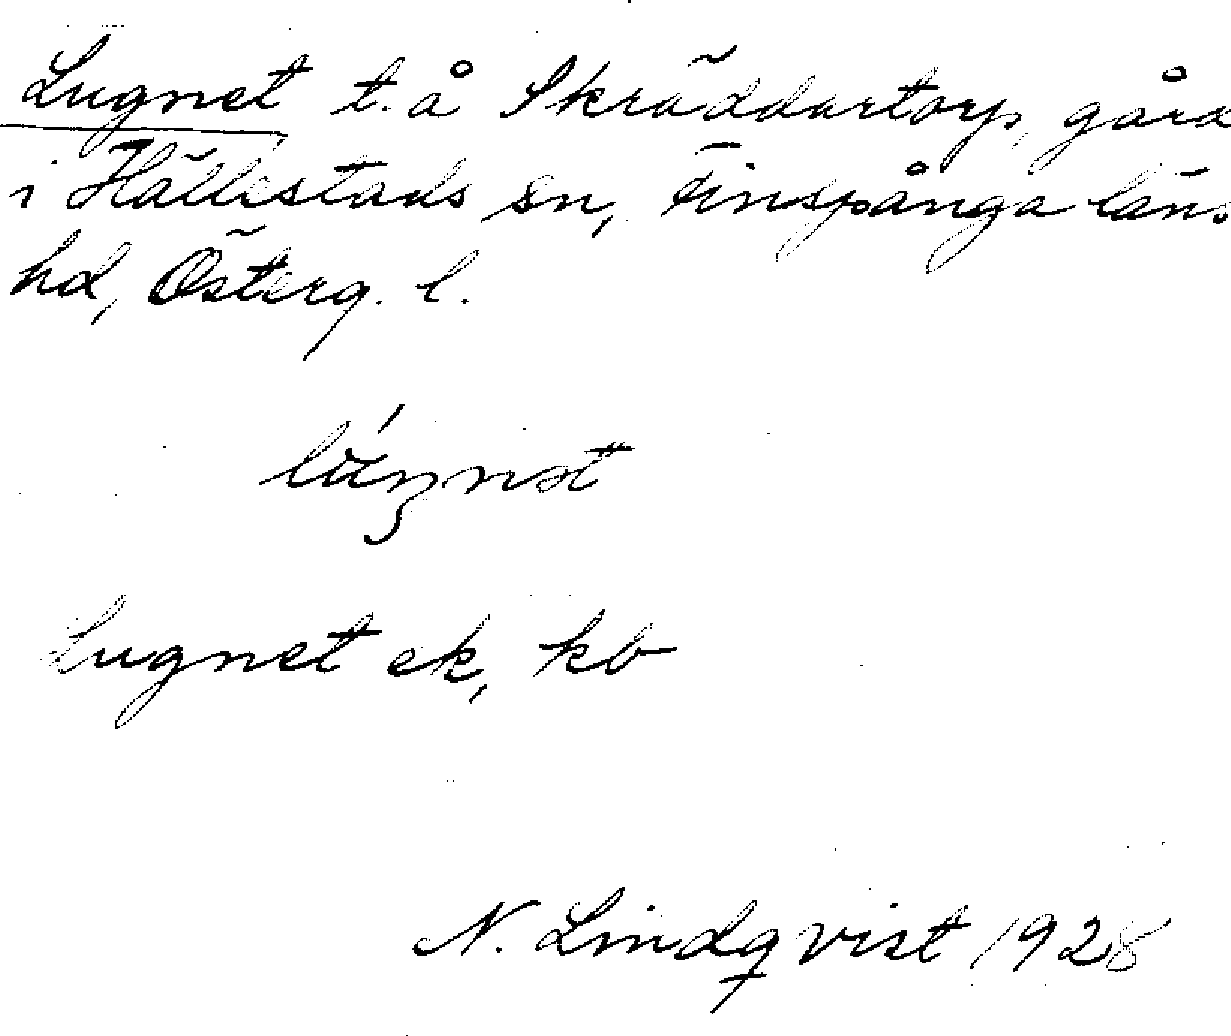 Lugnet t. å Skräddartorp, gård
i Hällestads sn, Finspånga läns
hd, Österg. l.
Lugnet ek, kb
N. Lindqvist 1928